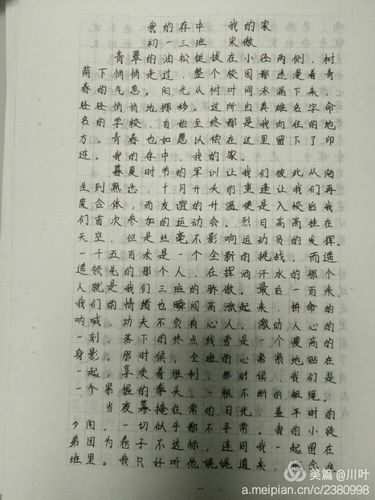 我的存中 我的家
初一三班 宋傲
青翠的油松挺拔在小径两侧，树
荫下悄悄走过，整个校园都弥漫着青
春的气息。阳光从树叶间未漏下来，
轻轻悄悄地挪移。这所由英雄名字命
名的学校，自始至终都是我向往的地
方。青春也如愿以偿在这里留下了印
迹。我的存中，我的家。
暮夏时节的军训让我们彼此从陌
生到熟悉，十月开头的重逢让我们再
度合体，而友谊的升温便是入校后我
们首次参加的运动会。烈日高高挂在
天空，但是丝毫不影响运动员的发挥。
一千五百米是一个全新的挑战，而遥
遥领先的那个人，在挥洒汗水的那个
人就是我们三班的骄傲。最后一百米，
我们的情绪也瞬间高涨起来，拼命的
呐喊。功夫不负有心人，激动人心的
一刻，落下的终点线旁是一个瘦高的
身影。那时候，全班的心紧紧地贴在
一起，享受着胜利。那时候，我们是
一个紧握的拳头，一根不断的粗绳。
当夜幕掩在常的日光，盖平时的
夕阳，一切似乎都不寻常。我的小徒
弟因为卷子不达标，连同我一起留在
班里。我只好听他娓娓道来，
美篇 @川叶
a.meipian.cn/c/2380998